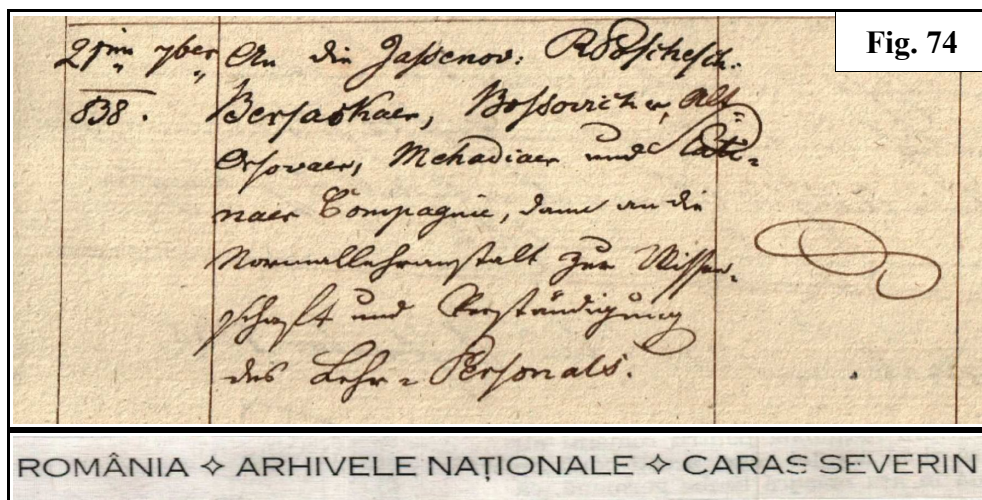 Fig. 74
7ber An die Jassenov:
838. Bersaskaer, Bossovicher, Alt
Orsovaer, Mehadiaer und Lati-
naer Compagnie, dann an die
Normallehranstalt zur Wissen-
schaft und Verständigung
des Lehr-Personals.
ROMÂNIA ✧ ARHIVELE NAȚIONALE ✧ CARAȘ SEVERIN